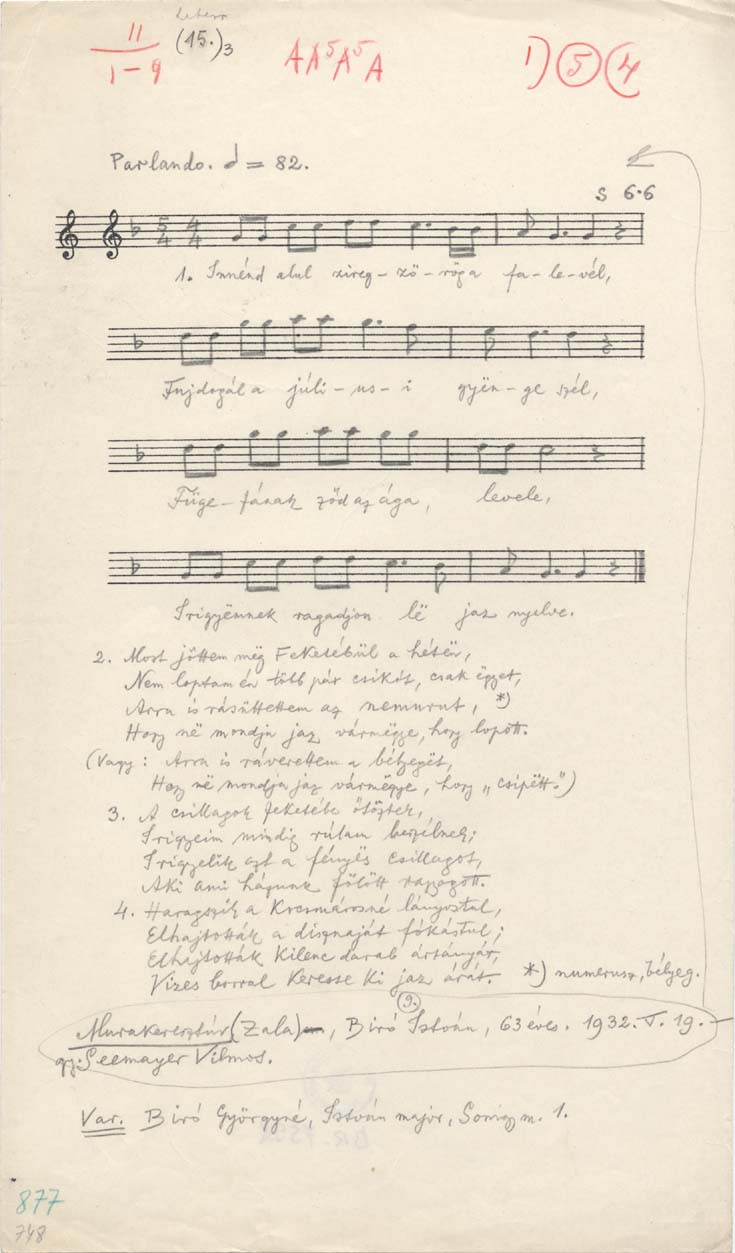 11
1–9
(15.)3
A A⁵ A⁵ A
1) 5 4
Parlando. = 82.
S 6·6
5 4
4 4
1. Innénd alul zireg-zö-rög a fa-le-vél,
Fujdogál a júli-us-i gyën-ge szél,
Füge-fának ződ az ága, levele,
Irigyëmnek ragadjon lë jaz nyelve.
2. Most jöttem mëg Feketébül a hétën,
Nem loptam én több pár csikót, csak ëgyet,
Arra is rásüttettem az nemurut, *)
Hogy në mondja jaz vármëgye, hogy lopott.
(Vagy: Arra is ráverettem a bélyegët,
Hogy në mondja jaz vármëgye, hogy „csípëtt.")
3. A csillagok feketébe ötöztek,
Irigyeim mindig rútam beszélnek;
Irigyelik azt a fényës csillagot,
Aki ami házunk fölött ragyogott.
4. Haragszik a Kocsmárosné lányostul,
Elhajtották a disznaját fókástul;
Elhajtották Kilenc darab ártányát,
Vizes borral keresse ki jaz árát.
*) numerusz, bélyeg.
9.
Murakeresztúr (Zala), Biró István, 63 éves. 1932. V. 19.
gy: Seemayer Vilmos.
Var. Biró Györgyné, István major, Somogy m. 1.
877
748